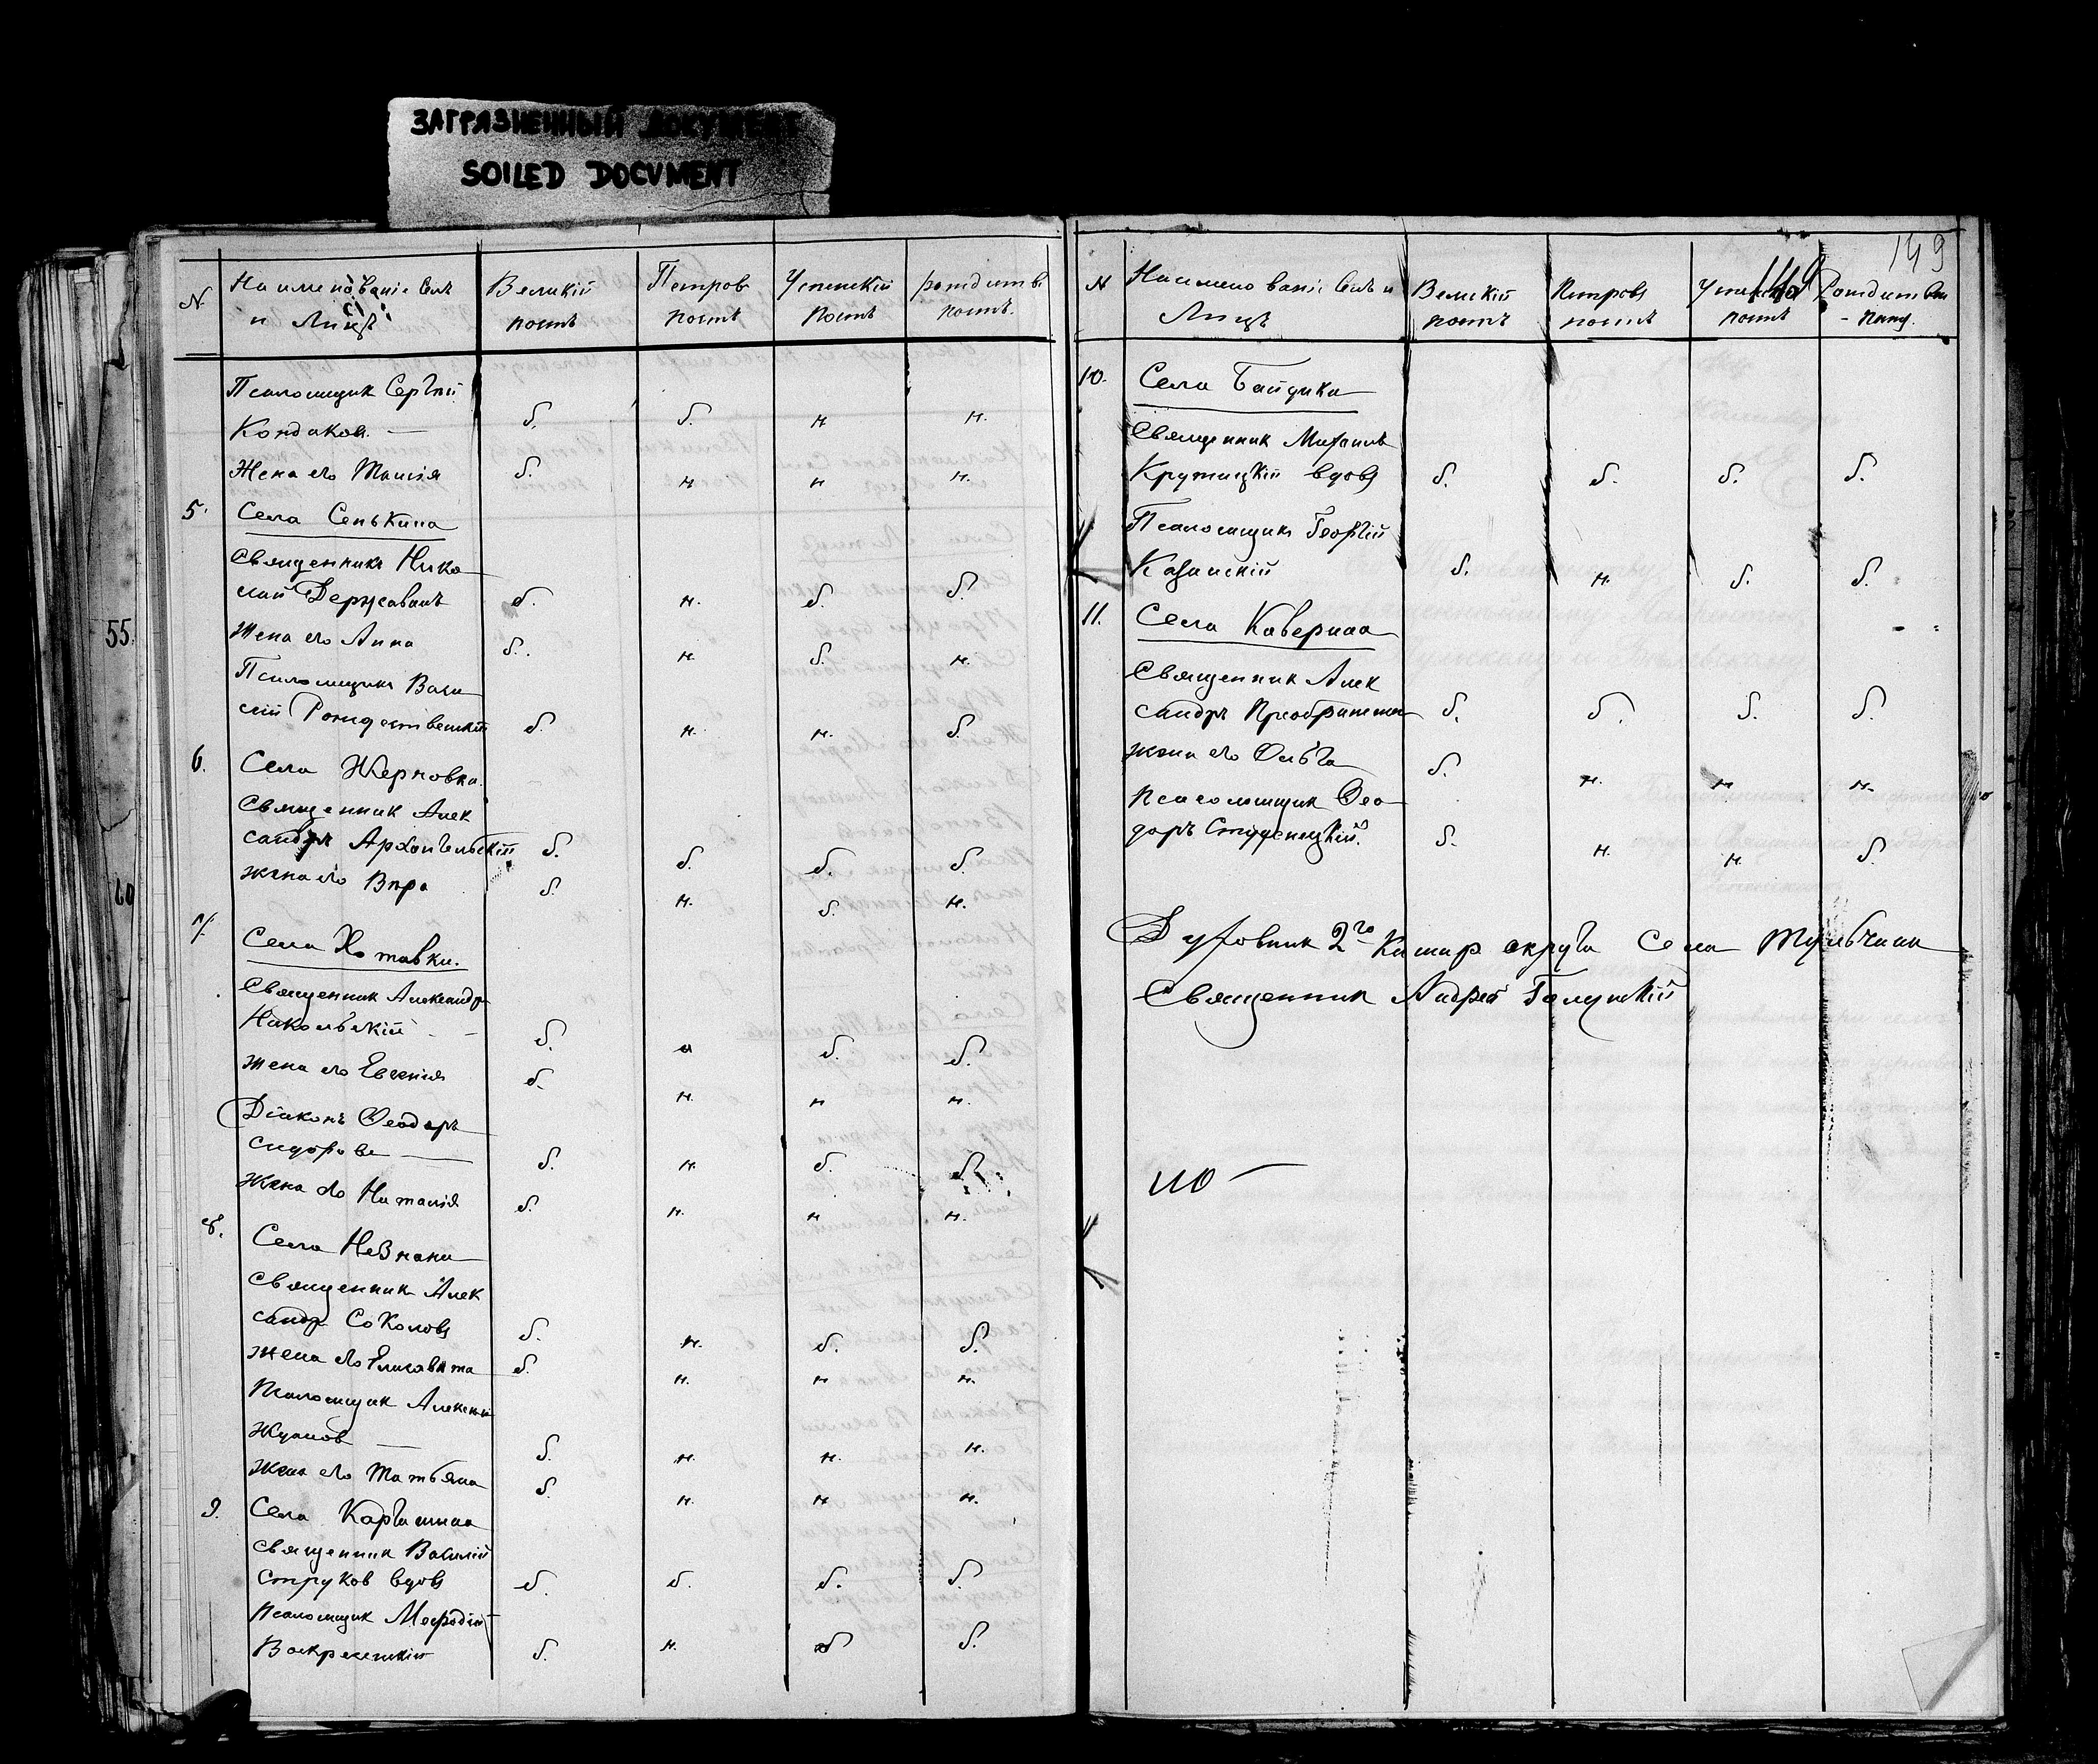 ЗАГРЯЗНЕННЫЙ ДОКУМЕНТ
SOILED DOCUMENT
55.
60
№ Наименованіе Селъ Великій Петровъ Успенскій рождеств.
и Лицъ постъ постъ постъ постъ.
Псаломщик Сергѣй
Кондаков. — б. б. н н.
Жена его Таисія б. н н н.
5. Села Сенькина
Священникъ Нико
лай Державинъ б. н. б. б.
Жена его Анна б. н. б. н.
Псаломщикъ Васи
лій Рождественскій б. н. н. б.
6. Села Жерновка.
Священник Алек
сандръ Архангельскій б. б. б. б.
жена его Вѣра б. н. б. н.
7. Села Хотавки.
Священник Александр
Никольскій б. н б. б.
жена его Евгенія б. н. н н.
Діаконъ Ѳеодоръ
Сидоровъ — б. н. б. б.
Жена его Наталія б. н. н н.
8. Села
Священник Алек
сандр Соколовъ б. н. б. б.
жена его Елисавета б. н. н н.
Псаломщик Алексѣй
— б. н. н. н.
Жена его Татьяна б. н. н н.
9. Села Каргашина
Священник Василій
Струков вдовъ б. б. б. б.
Псаломщик Меѳодій
Воскресенскій б. н. б б.
149
№ Наименованіе Селъ и Великій Петровъ Успенскій Рождествен
Лицъ постъ постъ постъ - постъ.
10. Села Байдика
Священник Михаилъ
Крутицкій вдовъ б. б. б. б.
Псаломщикъ Георгій
Казанскій б. н. б. б.
11. Села Каверина
Священник Алек
сандръ Преображенск б. б. б. б.
жена его Ольга б. н. н н.
Псаломщик Ѳео
доръ Студенецкій. б. н. н. б.
Духовник 2го Кашир округа Села
Священник Андрей Голунскій
110 —